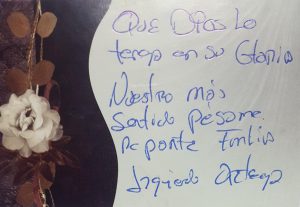 Que Dios Lo
tenga en su Gloria
Nuestro más
Sentido Pésame.
De parte Familia
Izquierdo Ortega